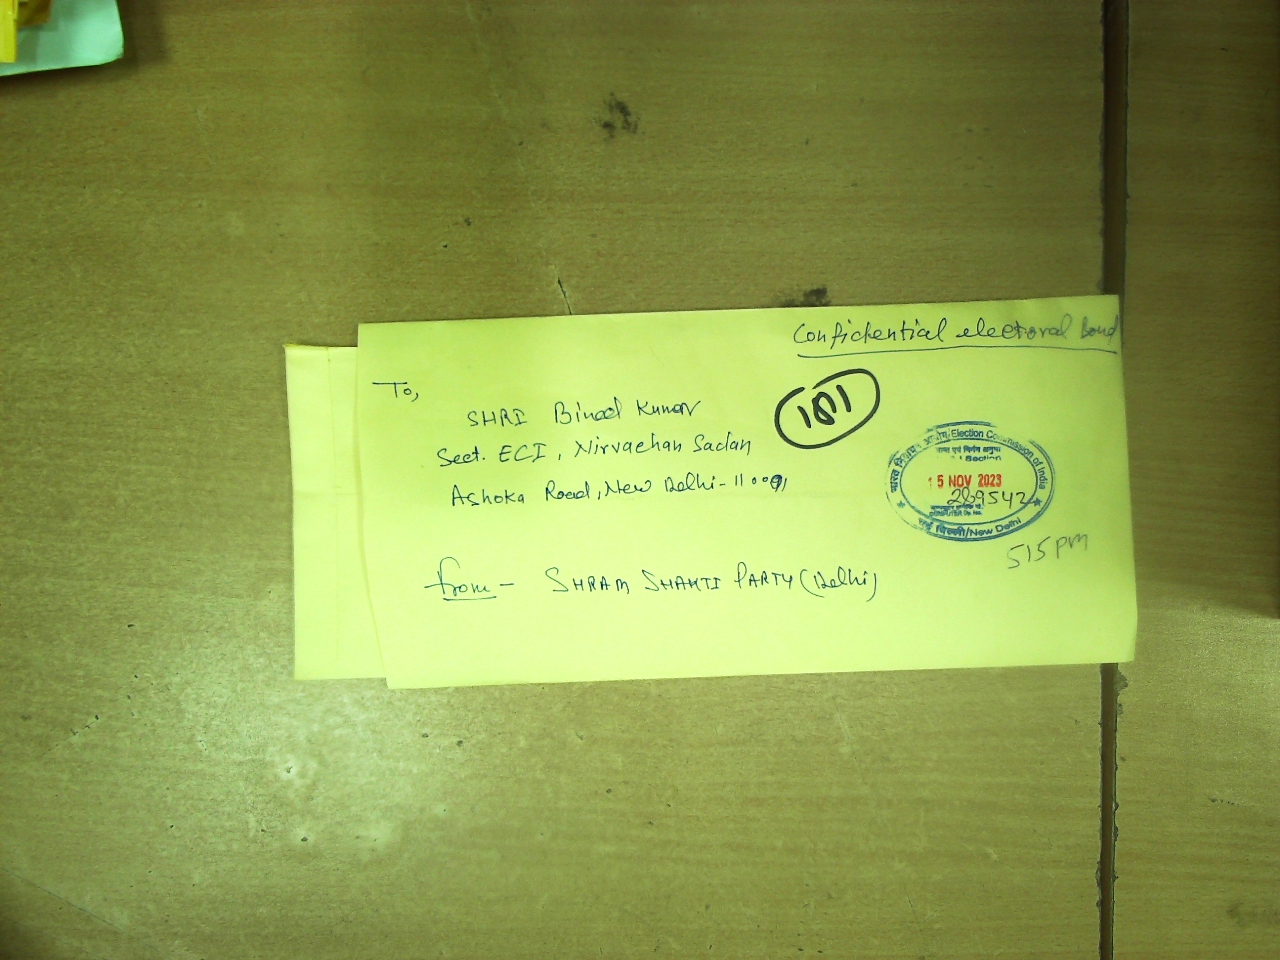 Confidential electoral Bond
To,
181
SHRI Binod Kumar
Sect. ECI, Nirvachan Sadan
Ashoka Road, New Delhi - 110001
भारत निर्वाचन आयोग/Election Commission of India
Section
15 NOV 2023
289542
नई दिल्ली/New Delhi
515 PM
from - SHRAM SHAKTI PARTY (Delhi)